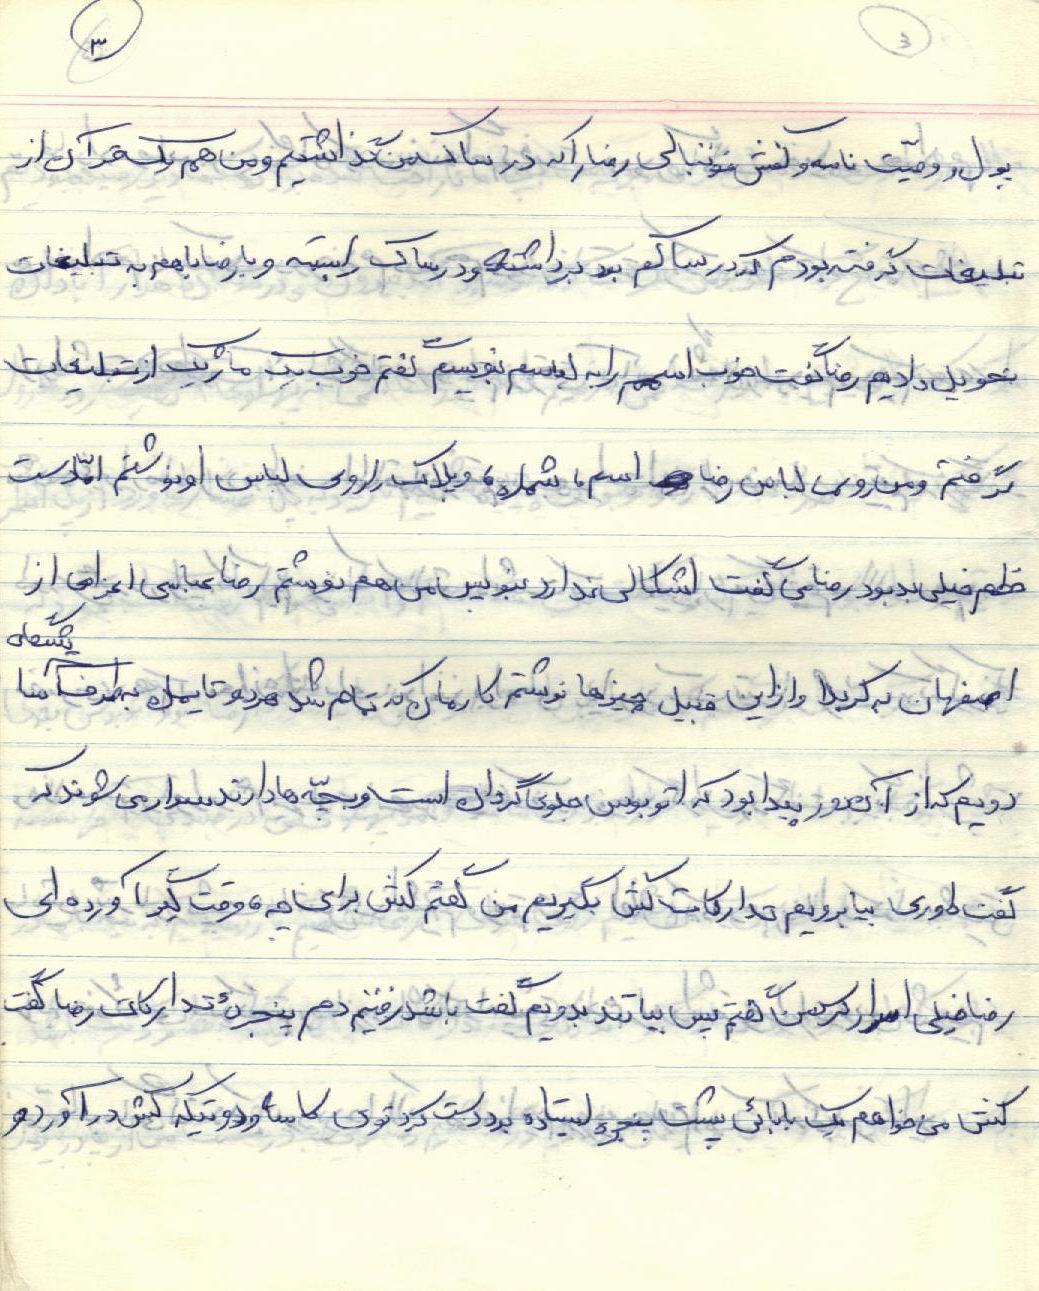 ۳
پول و وصیّت نامه و کفش فوتبالی رضا را که در ساک من گذاشتیم و من هم یک قرآن از
تبلیغات گرفته بودم که در ساکم بود برداشته و در ساک را بسته و با رضا باهم به تبلیغات
تحویل دادیم رضا گفت خوب اسمم را به لباسم بنویس گفتم خوب یک ماژیک از تبلیغات
گرفتم و من روی لباس رضا اسم، شماره، و پلاک را روی لباس او نوشتم امّا دست
خطم خیلی بد بود رضا می گفت اشکالی ندارد بنویس من هم نوشتم رضا عباسی اعزامی از
اصفهان به کربلا و از این قبیل چیزها نوشتم کارمان که تمام شد هر دو تا پیاده به طرف
دویم که از آن دور پیدا بود که اتوبوس جلوی گردان است و بچّه ها دارند سوار می شوند که
گفت داوری بیا برویم تدارکات کش بگیریم من گفتم کش برای چه وقت گیر آورده ای
رضا خیلی اصرار کرد من گفتم پس بیا تند بدویم گفت باشد رفتیم دم پنجرۀ تدارکات رضا گفت
کش می خواهم یک بابائی پشت پنجره ایستاده بود دست کرد توی کاسه و دو تیکه کش در آورد و